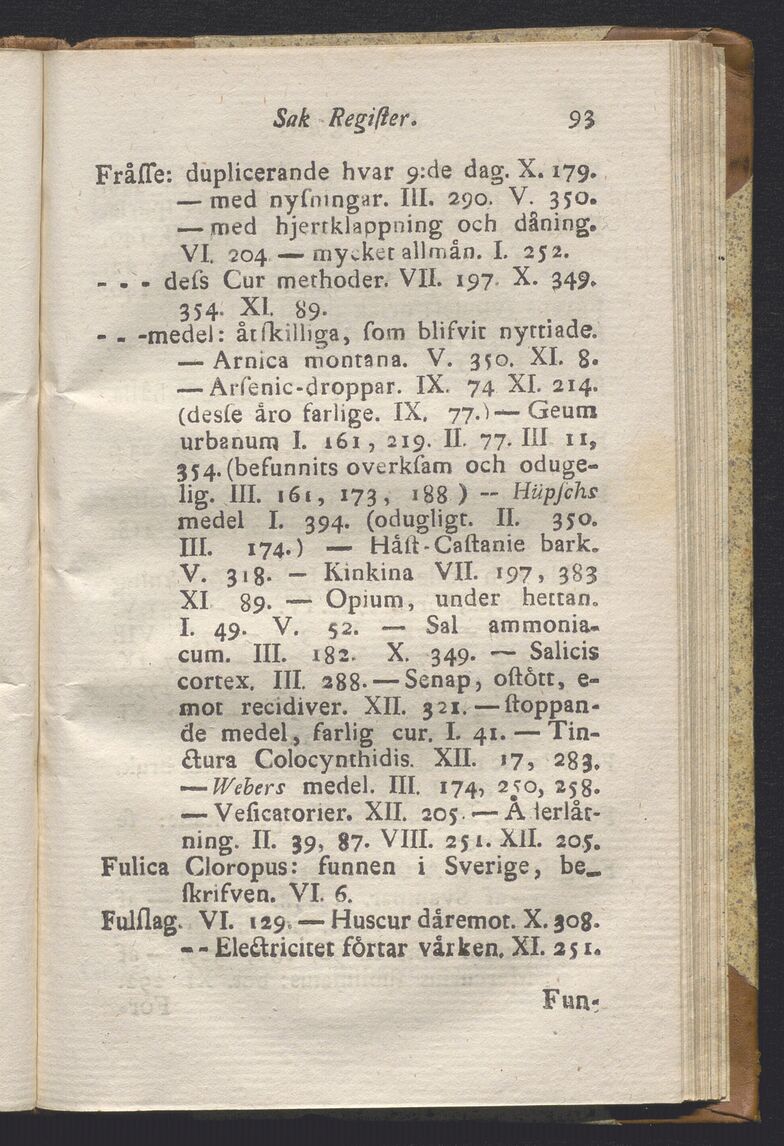 Sak Regiſter. 93
Fråſſe: duplicerande hvar 9:de dag. X. 179.
— med nyſningar. III. 290. V. 350.
— med hjertklappning och dåning.
VI. 204 — mycket allmån. I. 252.
- - - deſs Cur methoder. VII. 197. X. 349.
354. XI. 89.
- - -medel: åtſkilliga, ſom blifvit nyttiade.
— Arnica montana. V. 350. XI. 8.
— Arſenic-droppar. IX. 74 XI. 214.
(desſe åro farlige. IX. 77.) — Geum
urbanum I. 161, 219. II. 77. III 11,
354. (befunnits overkſam och oduge-
lig. III. 161, 173, 188 ) -- Hüpſchs
medel I. 394. (odugligt. II. 350.
III. 174.) — Håſt-Caſtanie bark.
V. 318. — Kinkina VII. 197, 383
XI 89. — Opium, under hettan.
I. 49. V. 52. — Sal ammonia-
cum. III. 182. X. 349. — Salicis
cortex. III. 288. — Senap, oſtôtt, e-
mot recidiver. XII. 321. — ſtoppan-
de medel, farlig cur. I. 41. — Tin-
ctura Colocynthidis. XII. 17, 283.
— Webers medel. III. 174, 250, 258.
— Veſicatorier. XII. 205. — Åderlåt-
ning. II. 39, 87. VIII. 251. XII. 205.
Fulica Cloropus: funnen i Sverige, be_
ſkrifven. VI. 6.
Fulſlag. VI. 129. — Huscur dåremot. X. 308.
- - Electricitet fôrtar vårken. XI. 251.
Fun-